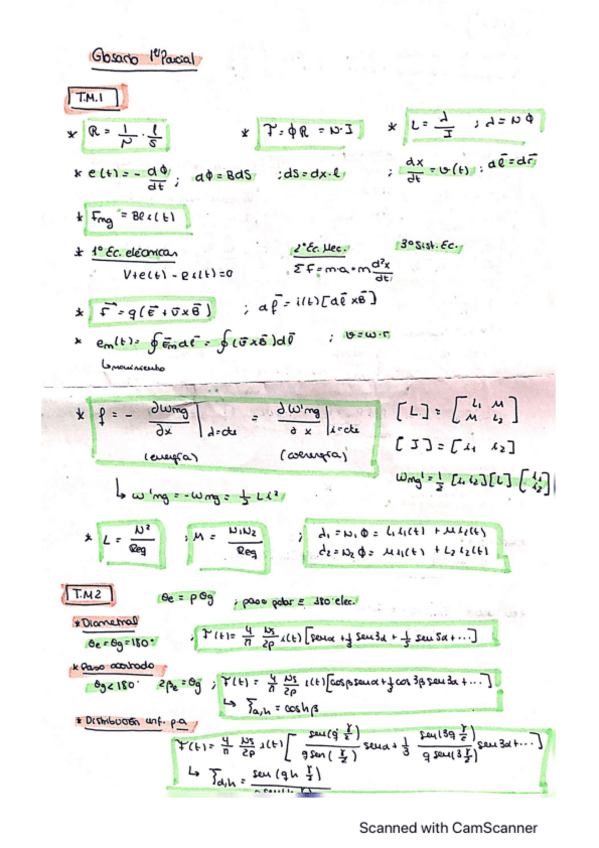 Glosario 1er Parcial
T.M.1
* R = 1/μ · l/S   * F = φR = N·I   * L = λ/I ; λ = Nφ
* e(t) = - dφ/dt ; dφ = BdS ; dS = dx·l ; dx/dt = v(t) ; dl = dr
* Fmg = Bl i(t)
* 1º Ec. eléctricas   2º Ec. Mec.   3º Sist. Ec.
V + e(t) - R i(t) = 0   ΣF = m·a = m d²x/dt
* F = q(E + v x B) ; df = i(t)[dl x B]
* em(t) = ∮ Em dl = ∮ (v x B) dl ; v = ω·r
↳ movimiento
* f = - ∂Wmg/∂x |λ=cte = ∂W'mg/∂x |i=cte   [L] = [L1 M / M L2]
(energía)   (coenergía)   [I] = [i1 i2]
↳ W'mg = -Wmg = 1/2 L i²   Wmg' = 1/2 [i1 i2][L][i1 / i2]
* L = N²/Req ; M = N1N2/Req ; λ1 = N1 φ = L1 i1(t) + M i2(t)
λ2 = N2 φ = M i1(t) + L2 i2(t)
T.M2   θe = p θg ; paso polar ≡ 180º elec.
* Diametral
θe = θg = 180º ; F(t) = 4/π Ns/2p i(t) [senα + 1/3 sen3α + 1/5 sen5α + ...]
* Paso acortado
θg < 180º   2βe = θg ; F(t) = 4/π Ns/2p i(t) [cosβ senα + 1/3 cos3β sen3α + ...]
↳ ξa,h = cos hβ
* Distribución unf. p.a
F(t) = 4/π Ns/2p i(t) [ sen(q γ/2) / q sen(γ/2) senα + 1/3 sen(3q γ/2) / q sen(3 γ/2) sen3α + ... ]
↳ ξd,h = sen(qh γ/2)
Scanned with CamScanner